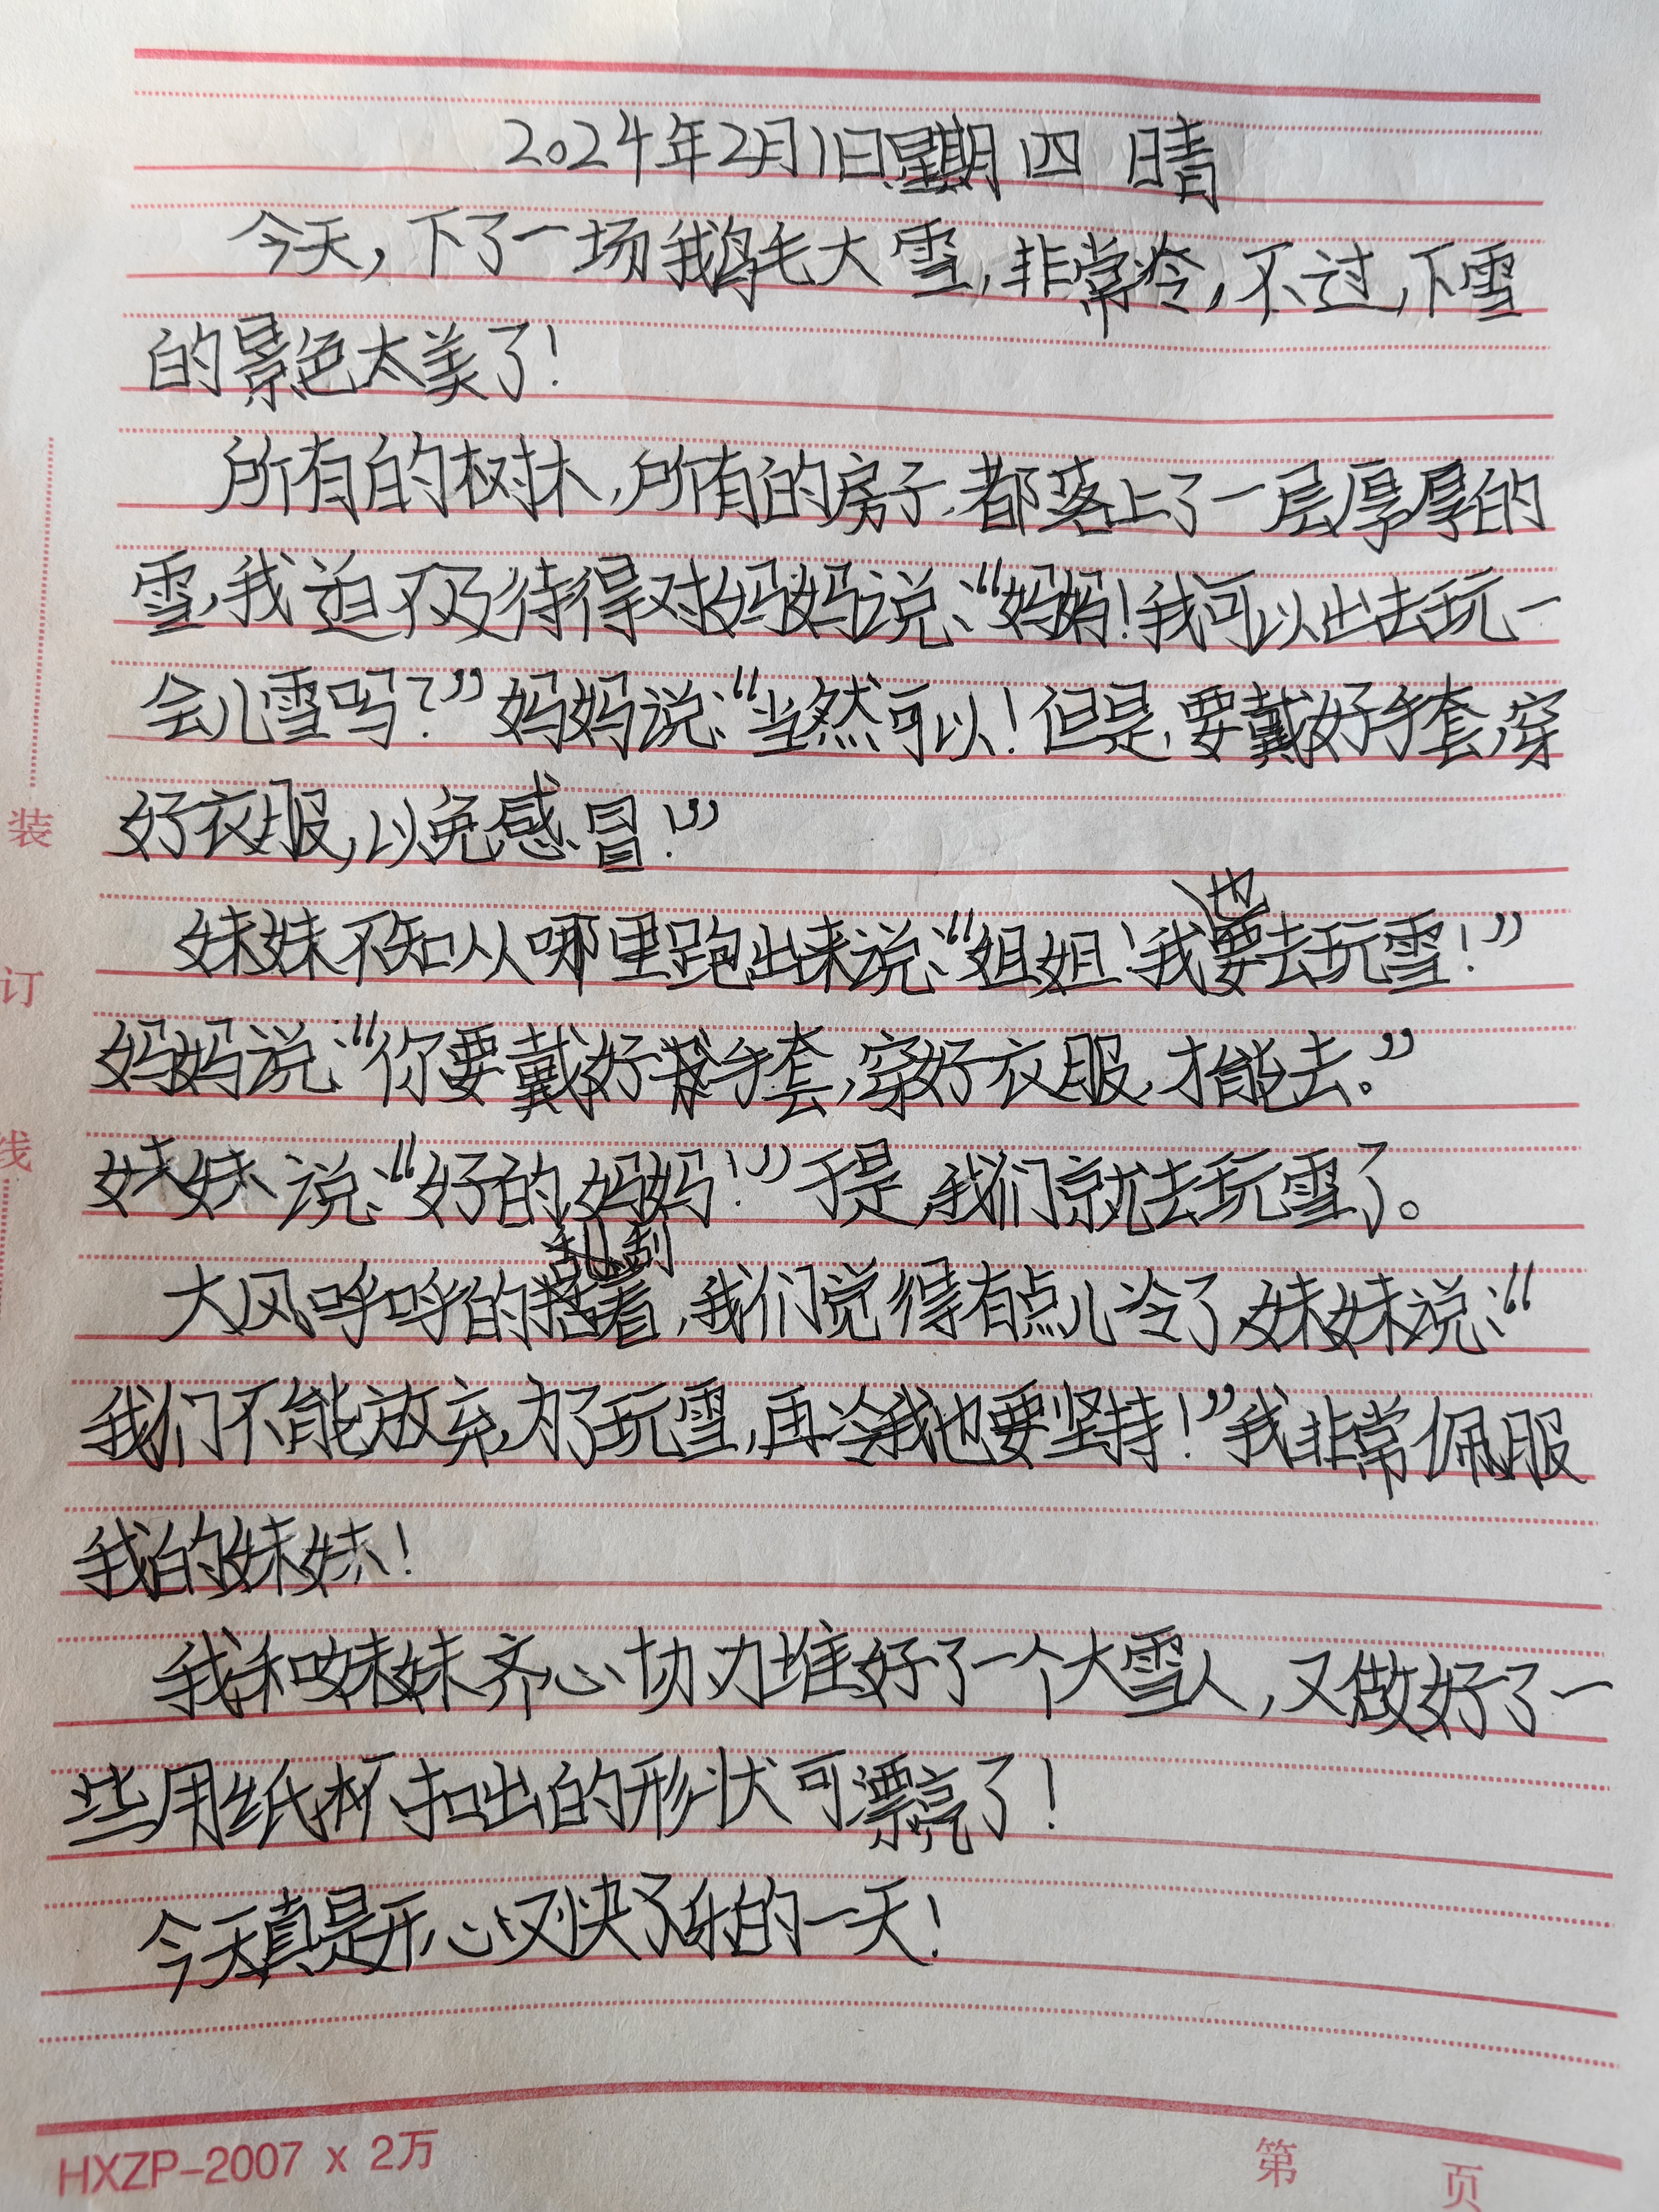 2024年2月1日星期四 晴
今天，下了一场鹅毛大雪，非常冷，不过，下雪
的景色太美了！
所有的树木，所有的房子，都落上了一层厚厚的
雪，我迫不及待得对妈妈说：“妈妈！我可以出去玩一
会儿雪吗？”妈妈说：“当然可以！但是，要戴好手套，穿
好衣服，以免感冒！”
妹妹不知从哪里跑出来说：“姐姐！我也要去玩雪！”
妈妈说：“你要戴好手套，穿好衣服，才能去。”
妹妹说：“好的，妈妈！”于是，我们就去玩雪了。
大风呼呼的乱刮着，我们觉得有点儿冷了，妹妹说：“
我们不能放弃，为了玩雪，再冷我也要坚持！”我非常佩服
我的妹妹！
我和妹妹齐心协力堆好了一个大雪人，又做好了一
些用纸杯扣出的形状可漂亮了！
今天真是开心又快乐的一天！
装
订
线
HXZP-2007 x 2万
第 页